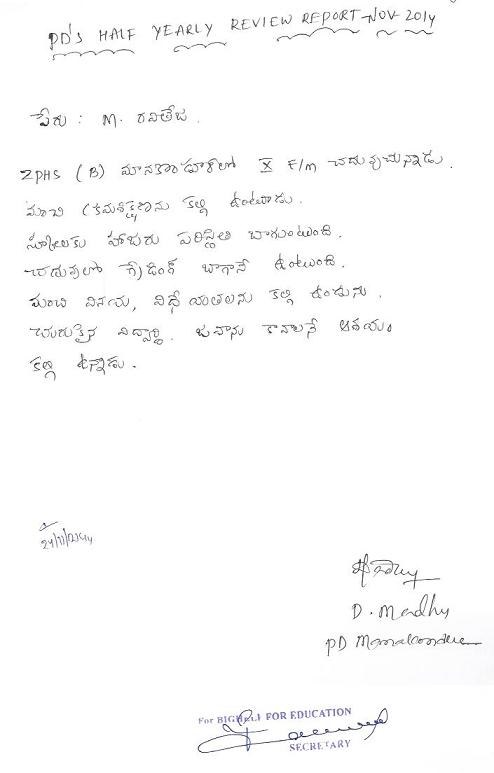 PD'S HALF YEARLY REVIEW REPORT - NOV - 2014
పేరు : M. రవితేజ.
ZPHS (B) మానకొండూర్‌లో X F/m చదువుచున్నాడు.
మంచి క్రమశిక్షణను కల్గి ఉంటాడు.
స్కూలుకు హాజరు పరిస్థితి బాగుంటుంది.
చదువులో గ్రేడింగ్ బాగానే ఉంటుంది.
మంచి వినయ, విధేయతలను కల్గి ఉండును.
చురుకైన విద్యార్థి. కావాలనే ఆశయం
కల్గి ఉన్నాడు.
24/11/2014
D. Madhu
PD Manakondur
For BIGHELP FOR EDUCATION
SECRETARY